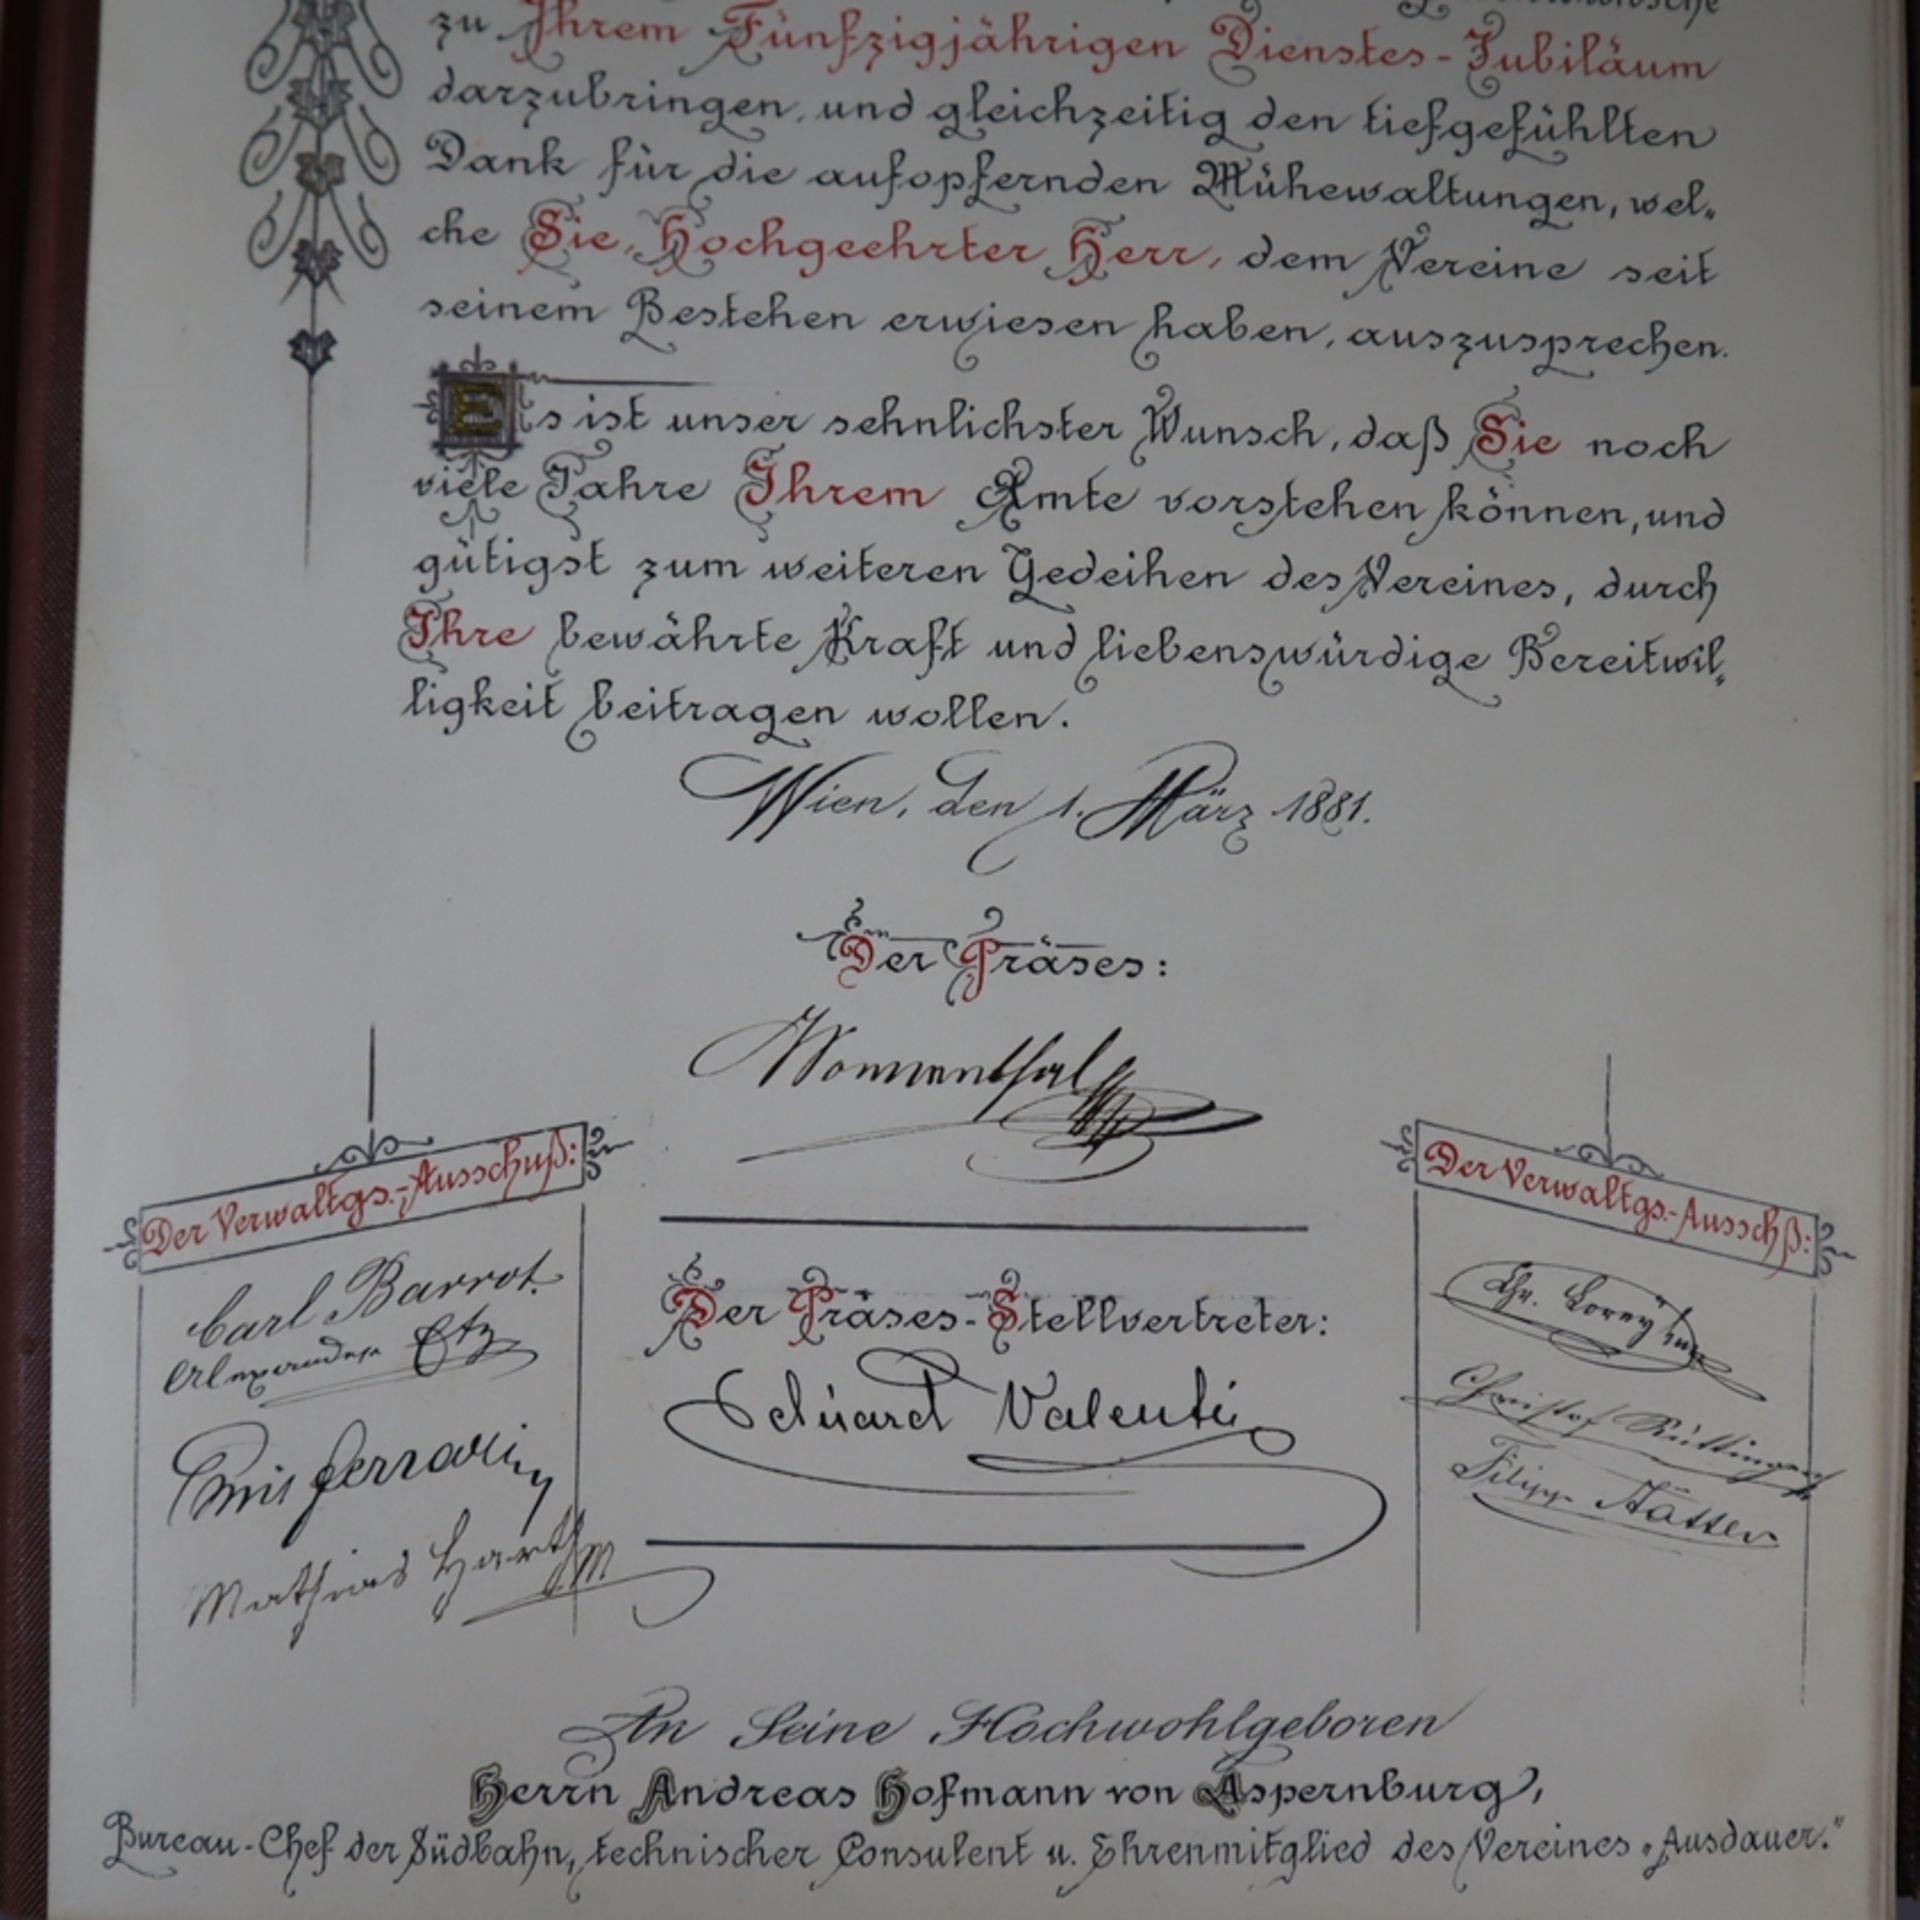 zu Ihrem Fünfzigjährigen Dienstes-Jubiläum
darzubringen, und gleichzeitig den tiefgefühlten
Dank für die aufopfernden Mühewaltungen, wel„
che Sie, Hochgeehrter Herr, dem Vereine seit
seinem Bestehen erwiesen haben, auszusprechen.
Es ist unser sehnlichster Wunsch, daß Sie noch
viele Jahre Ihrem Amte vorstehen können, und
gütigst zum weiteren Gedeihen des Vereines, durch
Ihre bewährte Kraft und liebenswürdige Bereitwil„
ligkeit beitragen wollen.
Wien, den 1. März 1881.
Der Präses:
Der Verwaltgs.-Ausschuß:
Carl Barrot
Alexander Etz
Ferrari
Mathias Harth
Der Präses-Stellvertreter:
Eduard Valentin
Der Verwaltgs.-Aussch ß:
Christof
Filipp
An Seine Hochwohlgeboren
Herrn Andreas Hofmann von Aspernburg,
Bureau-Chef der Südbahn, technischer Consulent u. Ehrenmitglied des Vereines „Ausdauer."